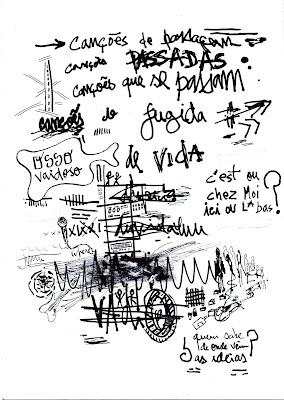 Canções de passagem
canções PASSADAS.
canções que se passam
canções de fugida
de VIDA
OSSO
vaidoso
c'est ou
chez Moi
ici ou Là bas?
where?
quem sabe
de onde vêm
as ideias?